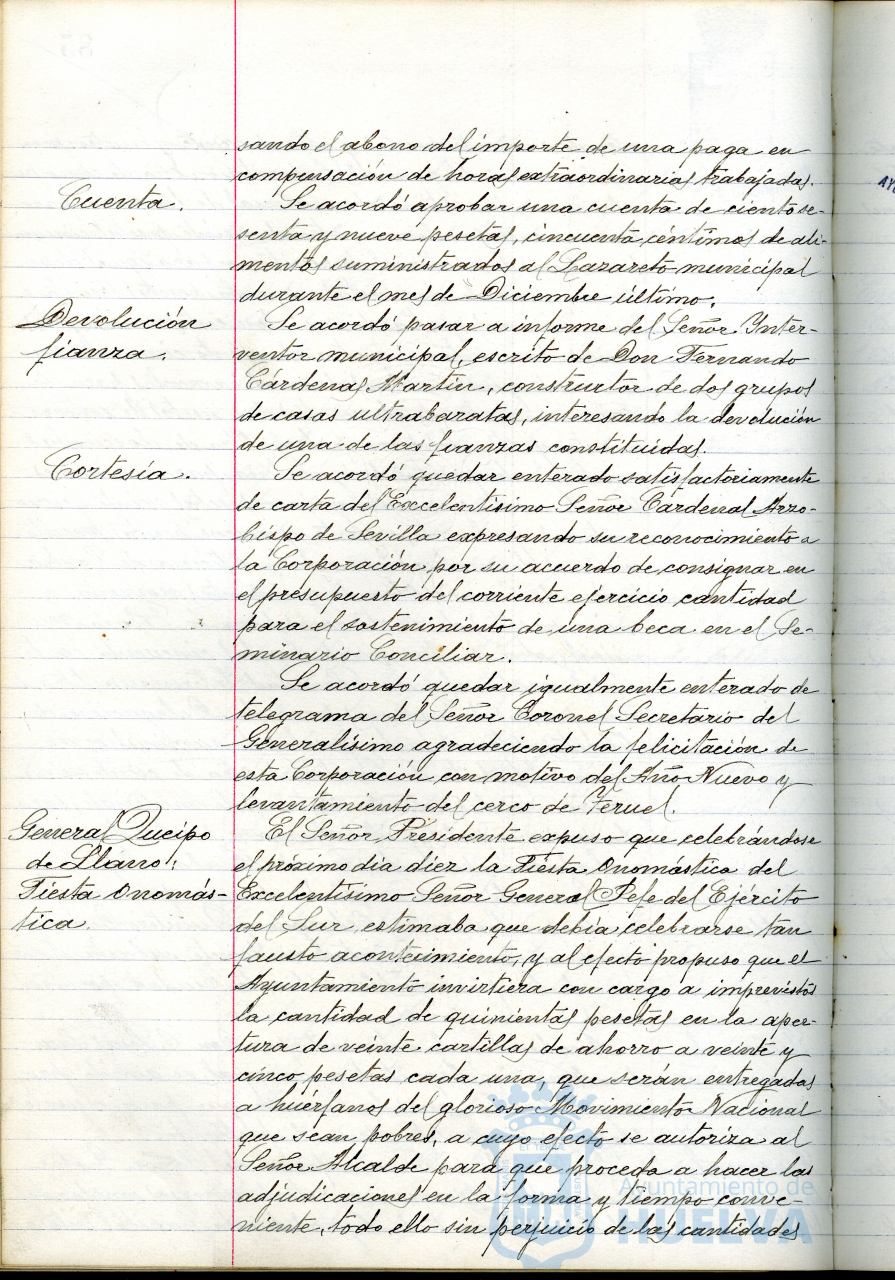 sando el abono del importe de una paga en
compensación de horas extraordinarias trabajadas.
Cuenta.
Se acordó aprobar una cuenta de ciento se-
senta y nueve pesetas, cincuenta céntimos de ali-
mentos suministrados al Lazareto municipal
durante el mes de Diciembre último.
Devolución
fianza.
Se acordó pasar a informe del Señor Inter-
ventor municipal, escrito de Don Fernando
Cárdenas Martín, constructor de dos grupos
de casas ultrabaratas, interesando la devolución
de una de las fianzas constituidas.
Cortesía.
Se acordó quedar enterado satisfactoriamente
de carta del Excelentísimo Señor Cardenal Arzo-
bispo de Sevilla expresando su reconocimiento a
la Corporación por su acuerdo de consignar en
el presupuesto del corriente ejercicio cantidad
para el sostenimiento de una beca en el Se-
minario Conciliar.
Se acordó quedar igualmente enterado de
telegrama del Señor Coronel Secretario del
Generalísimo agradeciendo la felicitación de
esta Corporación con motivo del Año Nuevo y
levantamiento del cerco de Teruel.
General Queipo
de Llano:
Fiesta onomás-
tica.
El Señor Presidente expuso que celebrándose
el próximo día diez la Fiesta onomástica del
Excelentísimo Señor General Jefe del Ejército
del Sur, estimaba que debía celebrarse tan
fausto acontecimiento, y al efecto propuso que el
Ayuntamiento invirtiera con cargo a imprevistos
la cantidad de quinientas pesetas en la aper-
tura de veinte cartillas de ahorro a veinte y
cinco pesetas cada una, que serán entregadas
a huérfanos del glorioso Movimiento Nacional
que sean pobres, a cuyo efecto se autoriza al
Señor Alcalde para que proceda a hacer las
adjudicaciones en la forma y tiempo conve-
niente, todo ello sin perjuicio de las cantidades
Ayuntamiento de
HUELVA